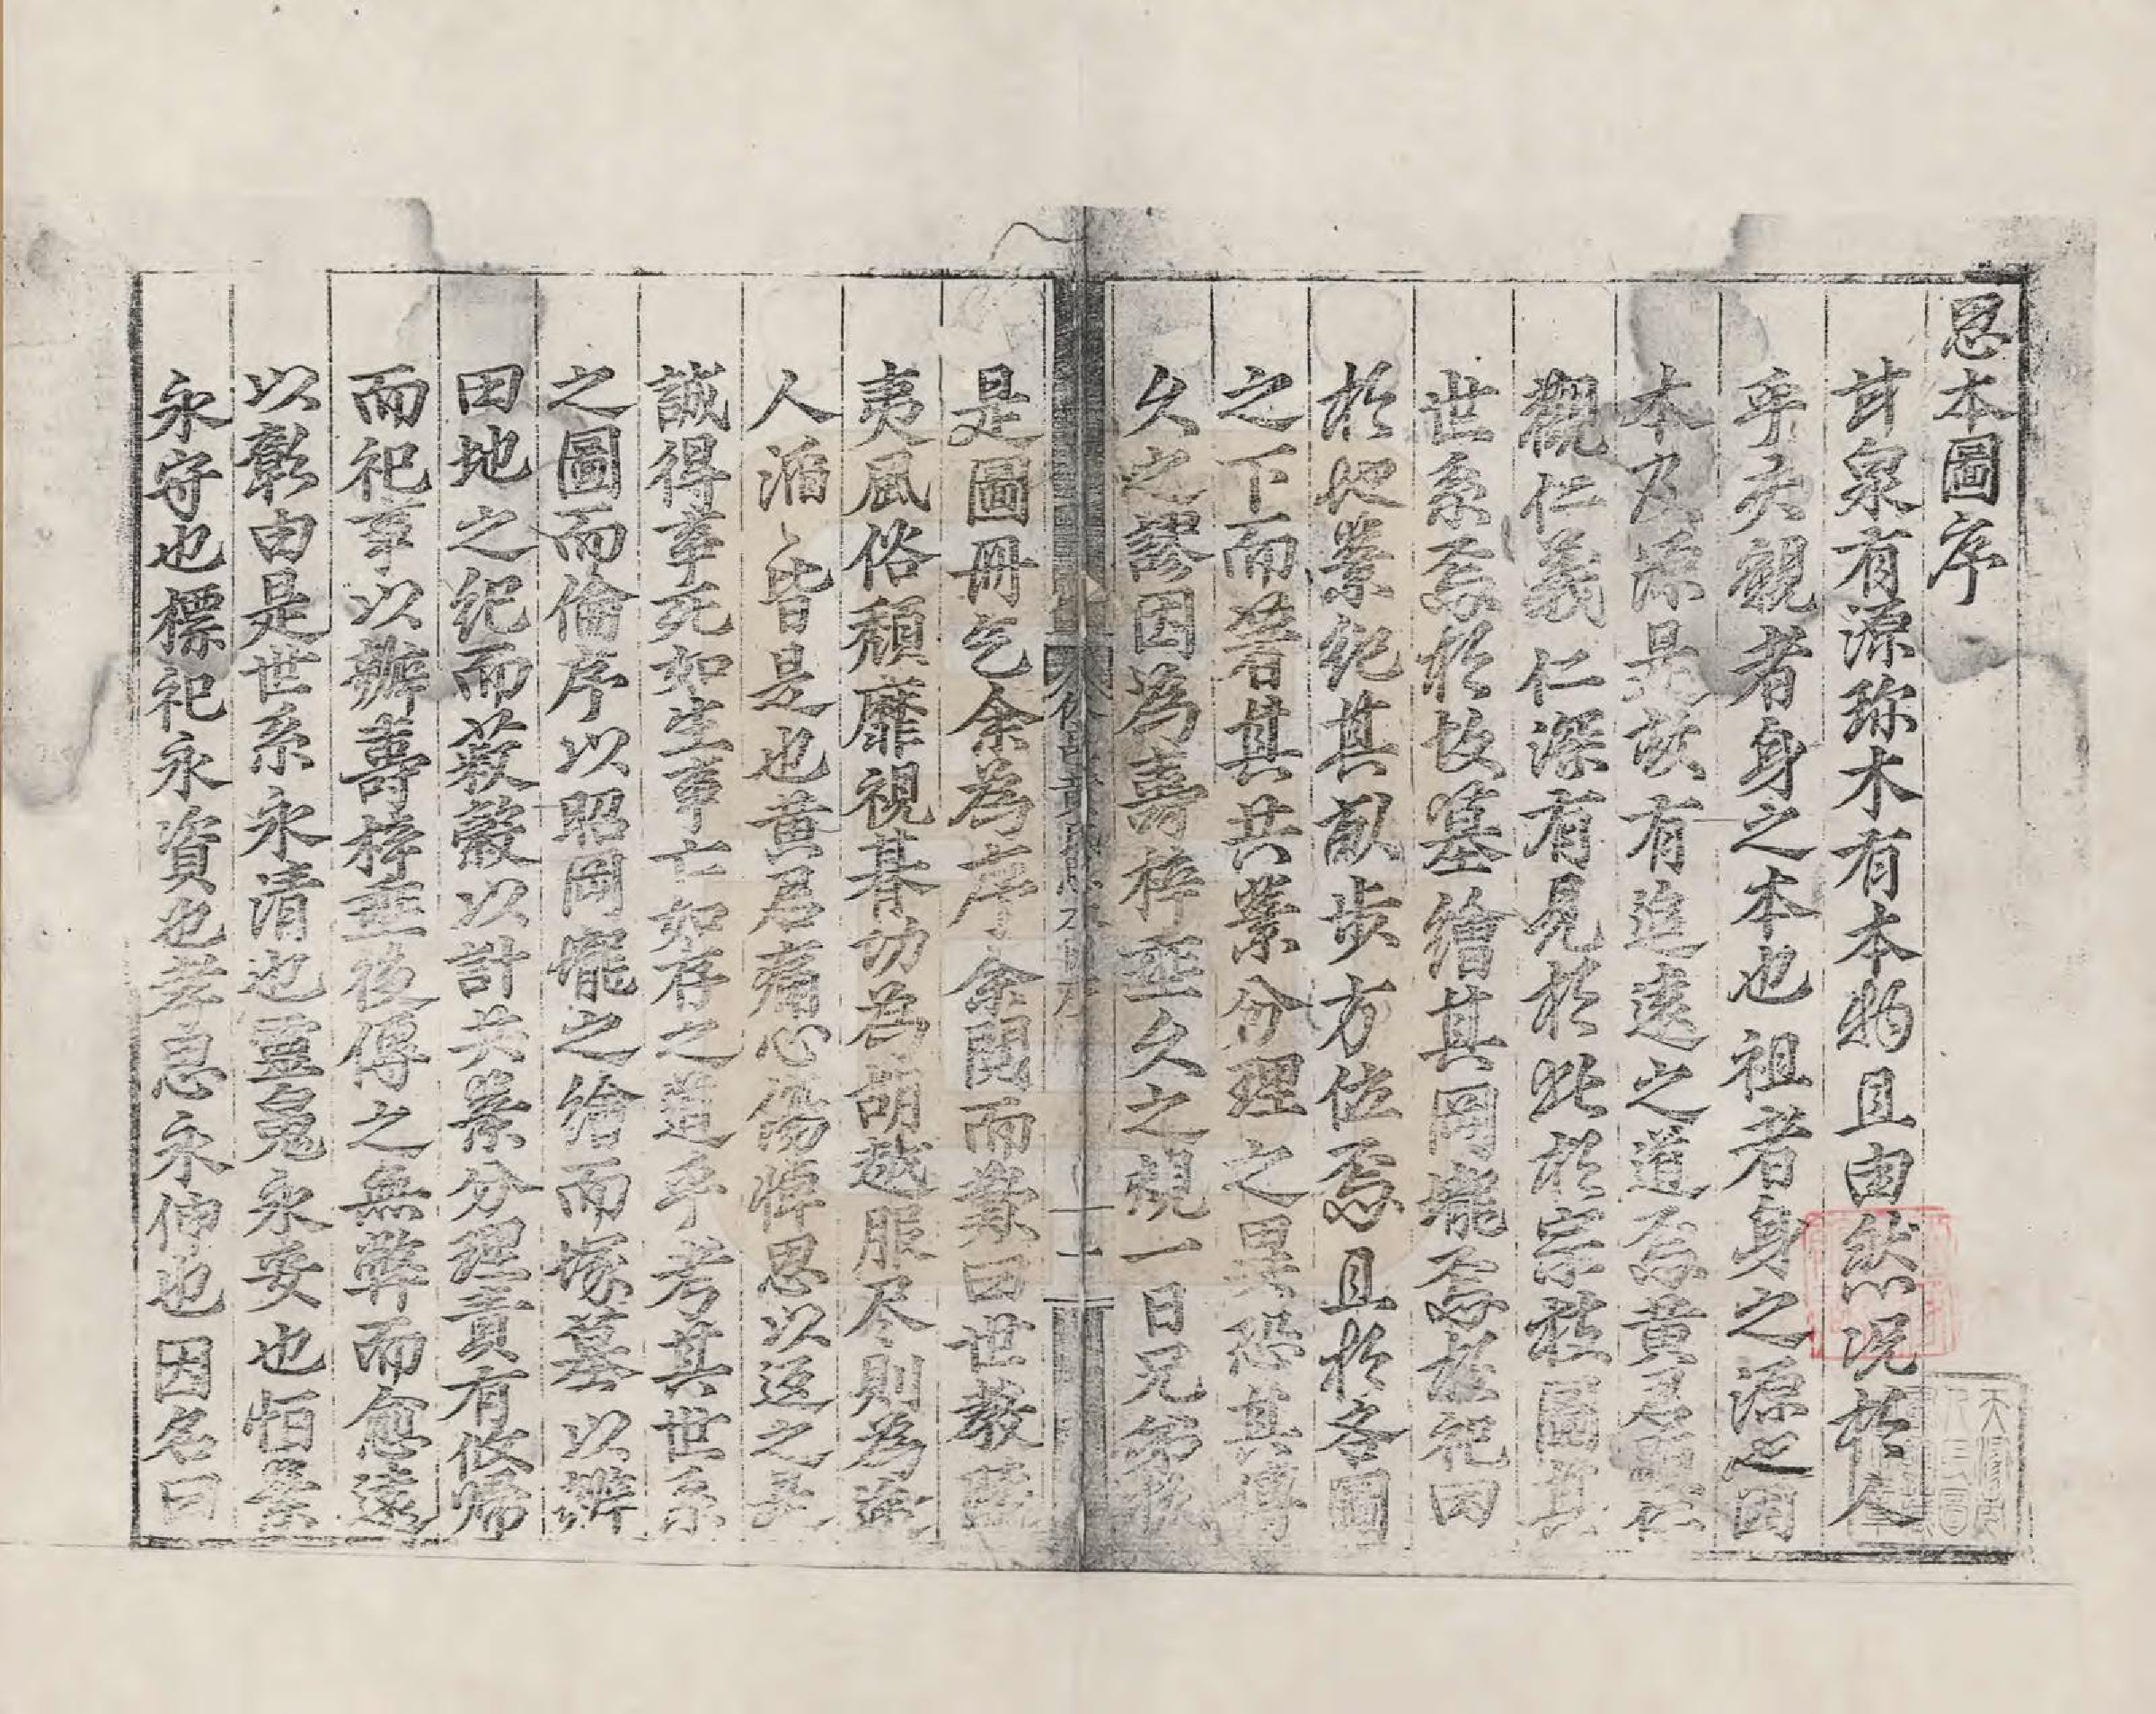 恩本圖序
甘泉有源珎木有本物且由然况於人
乎夫親者身之本也祖者身之源也因
本及源是故有追遠之道焉黃君仁
觀仁義仁深有見於此於宗枝圖其
世系焉於坟墓繪其岡壠焉於祀田
於地業紀其畝步方位焉且於各圖
之下而著其共業分理之異恐其傳
久之謬因為壽梓垂久之規一日兄弟
是圖冊乞余為序余閱而嘆曰世教
夷風俗頹靡視朞功為胡越服尽則為塗
人滔滔皆是也黃君痛心傷悼思以返之其
誠得事死如生事亡如存之道乎考其世系
之圖而倫序以昭岡壠之繪而塚墓以辨
田地之紀而菽粟以計共業分理責有攸歸
而祀事以辦壽梓垂後傳之無弊而愈遠
以彰由是世系永清也靈鬼永安也怕業
永守也標祀永資也孝思永伸也因名曰